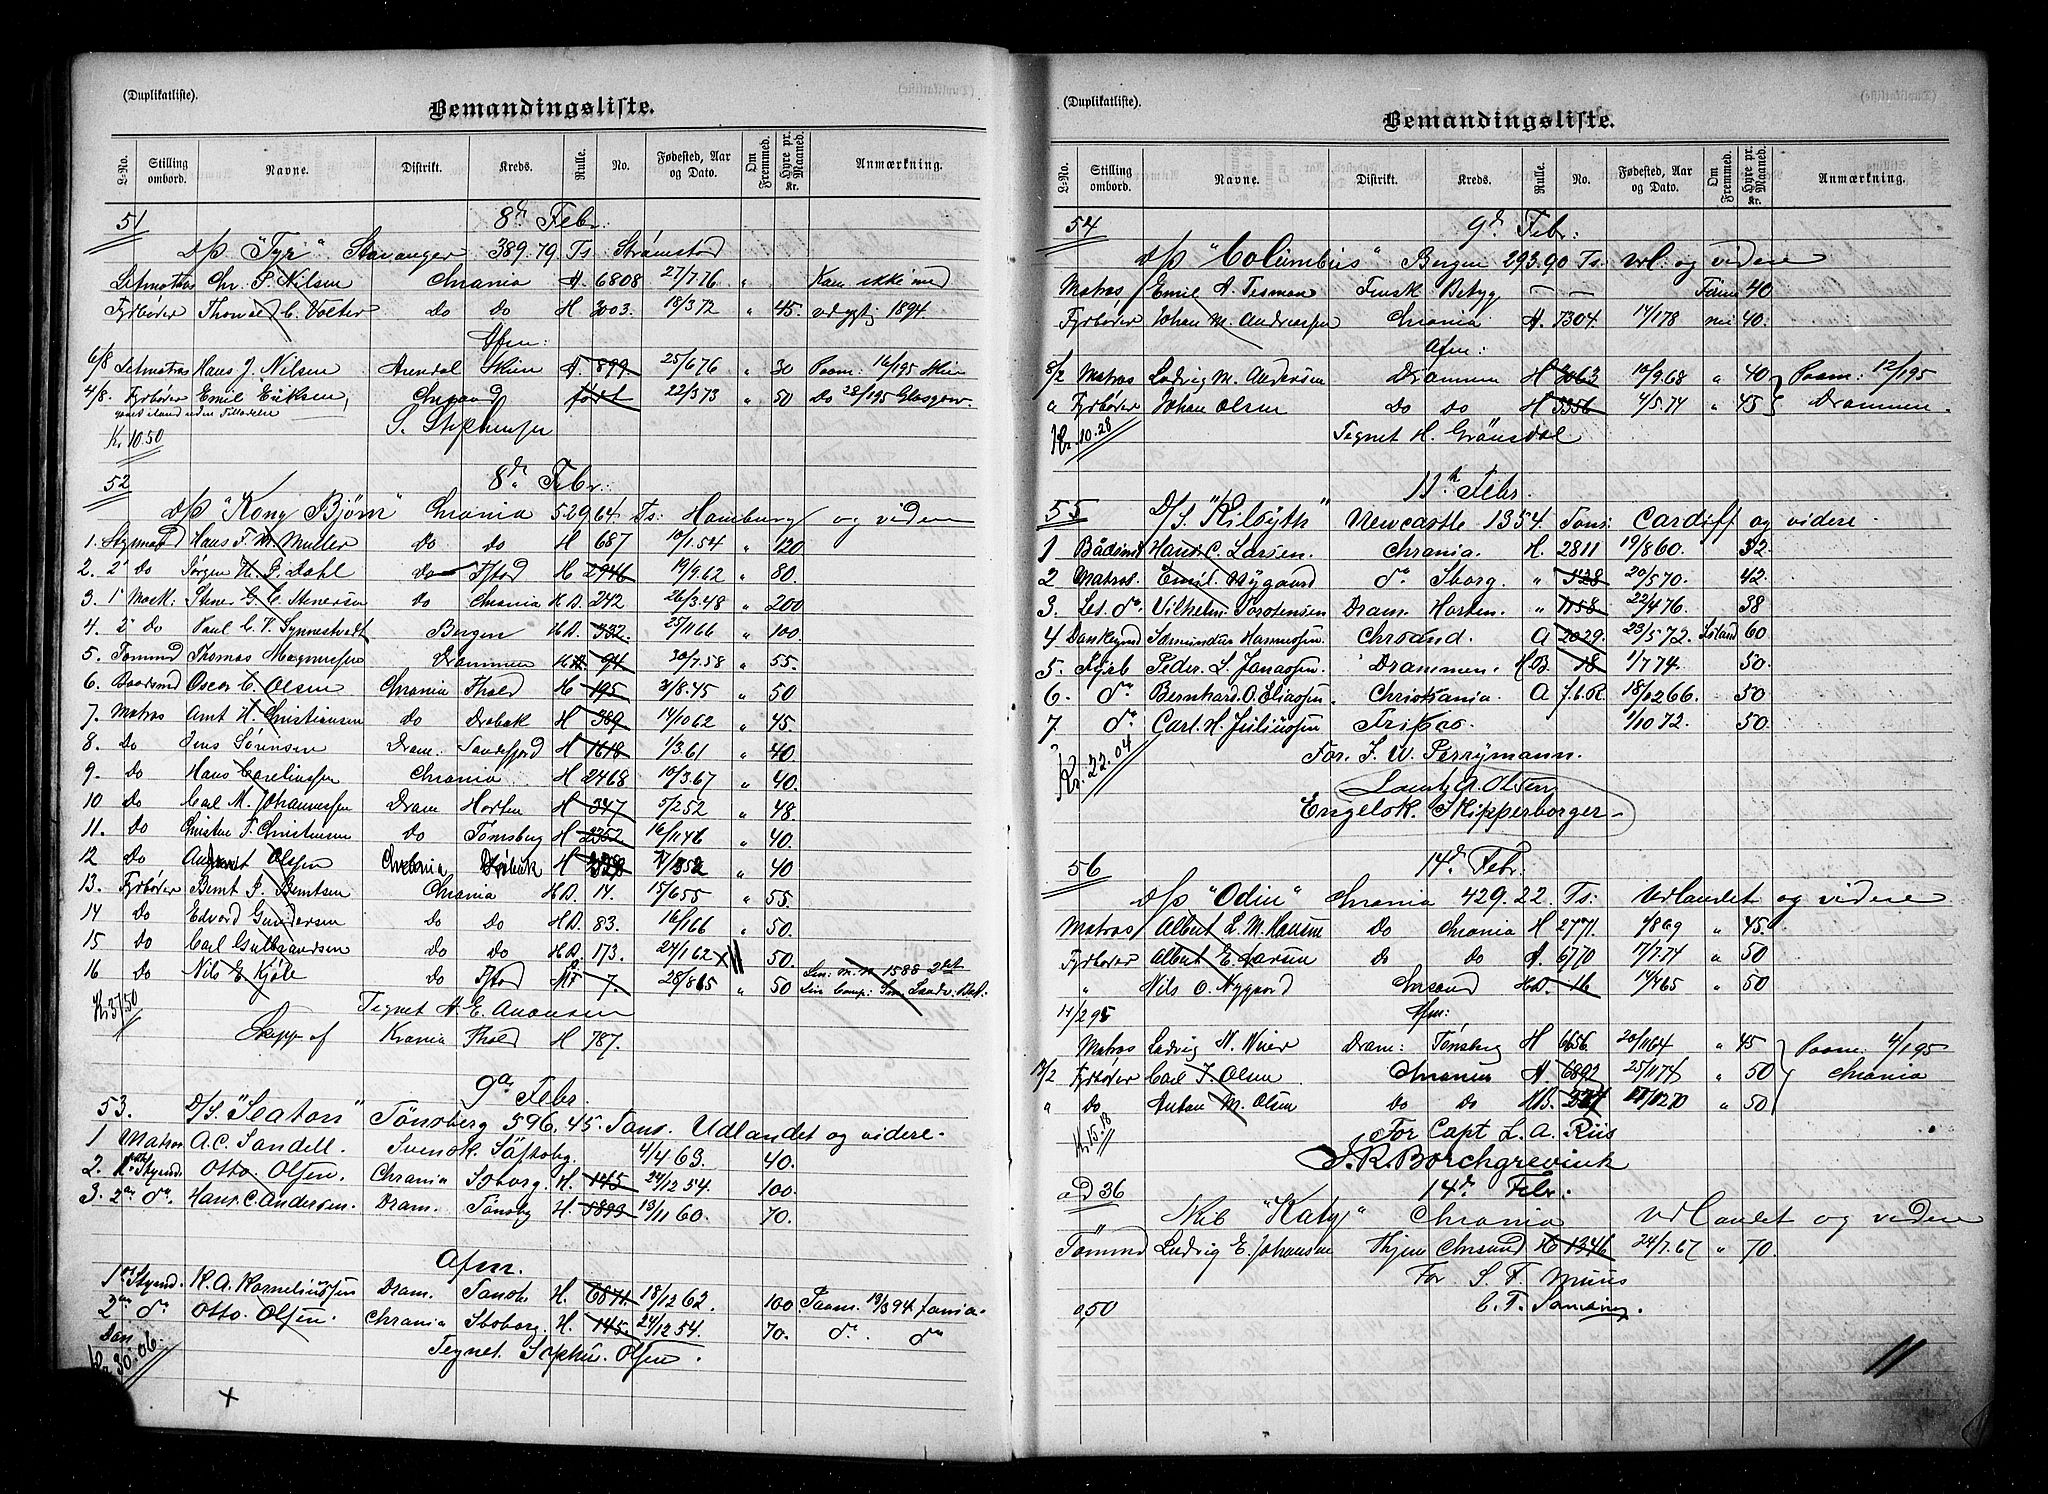 (Duplikatliste).
Bemandingsliste.
L-No. Stilling ombord. Navne. Distrikt. Kreds. Rulle. No. Fødested, Aar og Dato. Om Fremmed. Hyre pr. Maaned. Kr. Anmærkning.
51 8de Febr:
D/S "Tyr" Stavanger 389.79 Ts Strømstad
Letmatros Chr. P. Nilsen Chrania A 6808 27/7.76 " Kom ikke med
Fyrbøder Thomas C. Volter Do Do H 3003. 18/3 72 " 45. udygtig 1894
Afm:
6/8 Letmatros Hans J. Nilsen Arendal Skien A. 899 25/6 76 " 30 Paam: 16/1 95 Skien
4/8. Fyrbøder Emil Eriksen, Chrsand født 22/3 73 " 50 Do 28/1 95 Glasgow.
Kr. 10.50 S. Stephensen
52 8de Febr:
D/S "Kong Bjørn" Chrania 529 64 Ts: Hamburg og videre
1. Styrmand Hans F. M. Muller Do Do H 687 10/1.54 " 120
2. 2 Do Jørgen H. P. Dahl Do Fstad H 2946 19/9.62 " 80.
3. 1 Mask: Stener G. C. Stenersen Do Chrania H.D. 242 26/3.48 " 200
4. 2 Do Paul C. V. Synnestvedt Bergen H.D. 332. 25/11 66 " 100.
5. Tømmd Thomas Magnussen Drammen H 94 20/7.58 " 55.
6. Baadsmd Oscar C. Olsen Chrania Fhald H 195 31/8.45 " 50
7. Matros Amt H. Christiansen Do Drøbak H 389 14/10 62 " 45.
8. Do Jens Sørensen Dram: Sandefjord H 1618 1/3.61 " 40
9. Do Hans Corneliussen Chrania H 2468 10/3.67 " 40.
10 Do Carl M. Johannessen Dram Horten H 347 5/2 52 " 48
11. Do Christen F. Christensen Do Tønsberg H 2352 16/11 46 " 40.
12 Do Olsen Chrania Drøbak H 328 " 40
13. Fyrbøder Bernt P. Berntsen Chrania H.D. 14. 15/6 55 " 55.
14 Do Edvard Gundersen Do Do H.D. 83. 16/1 66 " 50.
15 Do Carl Gulbrandsen Do Do H.D. 173. 24/1 62 50.
16 Do Nils E. Kjøle Do Fstad 7. 28/8 65 " 50
Kr 37.50 Tegnet A. E. Aronsen
Skipp af Krania Fhald H 787.
9de Febr.
53. D/S. "Seaton" Tönsberg 596.45 Tons. Udlandet og videre.
1 Matros A. C. Sandell. Svensk. Söftsbg. 4/4 63. 40.
2. 1ste Styrmd. Otto. Olsen. Chrania Sborg. H. 145 24/12 54. 100.
3. 2den do. Hans. C. Andersen. Dram. Tönsbg H. 5899 13/11 60. 70.
Afm.
1ste Styrmd. K. A. Korneliussen Dram. Tønsb. H. 6871 18/12 62. 100. Paam. 19/3 94 Jonia.
2den do Otto. Olsen. Chrania Sborg. H. 145. 24/12 54. 70. do. do
Kr. 30.06. Tegnet. Sophus. Olsen.
(Duplikatliste).
Bemandingsliste.
L-No. Stilling ombord. Navne. Distrikt. Kreds. Rulle. No. Fødested, Aar og Dato. Om Fremmed. Hyre pr. Maaned. Kr. Anmærkning.
54 9de Febr:
D/S "Columbus" Bergen 293.90 Ts. Udl. og videre
Matros Emil A. Tesman Finsk Betyg — — 40
Fyrbøder Johan M. Andreassen Chrania A. 7304. 14/1 78 40.
Afm:
8/2 Matros Ludvig M. Andersen Drammen H 3063 10/9.68 " 40 Paam: 12/1 95
" Fyrbøder Johan Olsen Do Do H 5356 4/5.74 " 45 Drammen.
Kr. 10.28 Tegnet H. Grönsdal
11te Febr.
55 D/S. "Kilsyth" Newcastle 1354. Tons: Cardiff og videre.
1 Bådsmd Hans. C. Larsen. Chrania. H. 2811 19/8 60. 52.
2 Matros. Emil. Nygaard do Sborg. " 528 20/5 70. 42.
3. Let. do. Vilhelm. Torstensen Dram. Horten. " 1158 22/4 76 38
4 Donkeymd Hannessen. Chrsand. A 2029. 23/5 72. Island 60
5. Fyrb Peder. L. Jonassen. Drammen. H.B. 18 1/7 74. 50.
6. do Bernhard. O. Eliassen. Christiania. A 7.6.R 18/12 66. 50
7. do Carl. H. Juliussen Frikao. 1/10 72. 50.
Kr. 22.04 For. J. W. Perrymann.
Lauts. A. Olsen
Engelsk. Skipperborger.
56 14de Febr.
D/S "Odin" Chrania 429.22. Ts: Udlandet og videre
Matros Albert L. M. Hansen Do Chrania H 2771. 1/8 69 " 45.
Fyrbøder Albert E. Larsen Do Do A. 6770 17/7.74 " 50
" Nils O. Nygaard Chrsand H.D. 16 14/4 65 " 50
11/2 95 Afm:
Matros Ludvig N. Wier Dram: Tønsberg H 6656. 20/11 64 " 45 Paam: 4/1 95
12/2 Fyrbøder Carl J. Olsen Chrania A. 6892 25/11 74 " 50 Chrania
" Do Anton M. Olsen Do Do H.D. " 50
Kr. 15.18 For Capt L. A. Riis
S. R. Borchgrevink
ad 36 14de Febr:
Skib "Katy" Chrania Udlandet og videre
Tömmd Ludvig E. Johansen Hjem Chrsund H 1346 24/7.67 " 70.
For S. F. Muus
0,50
11